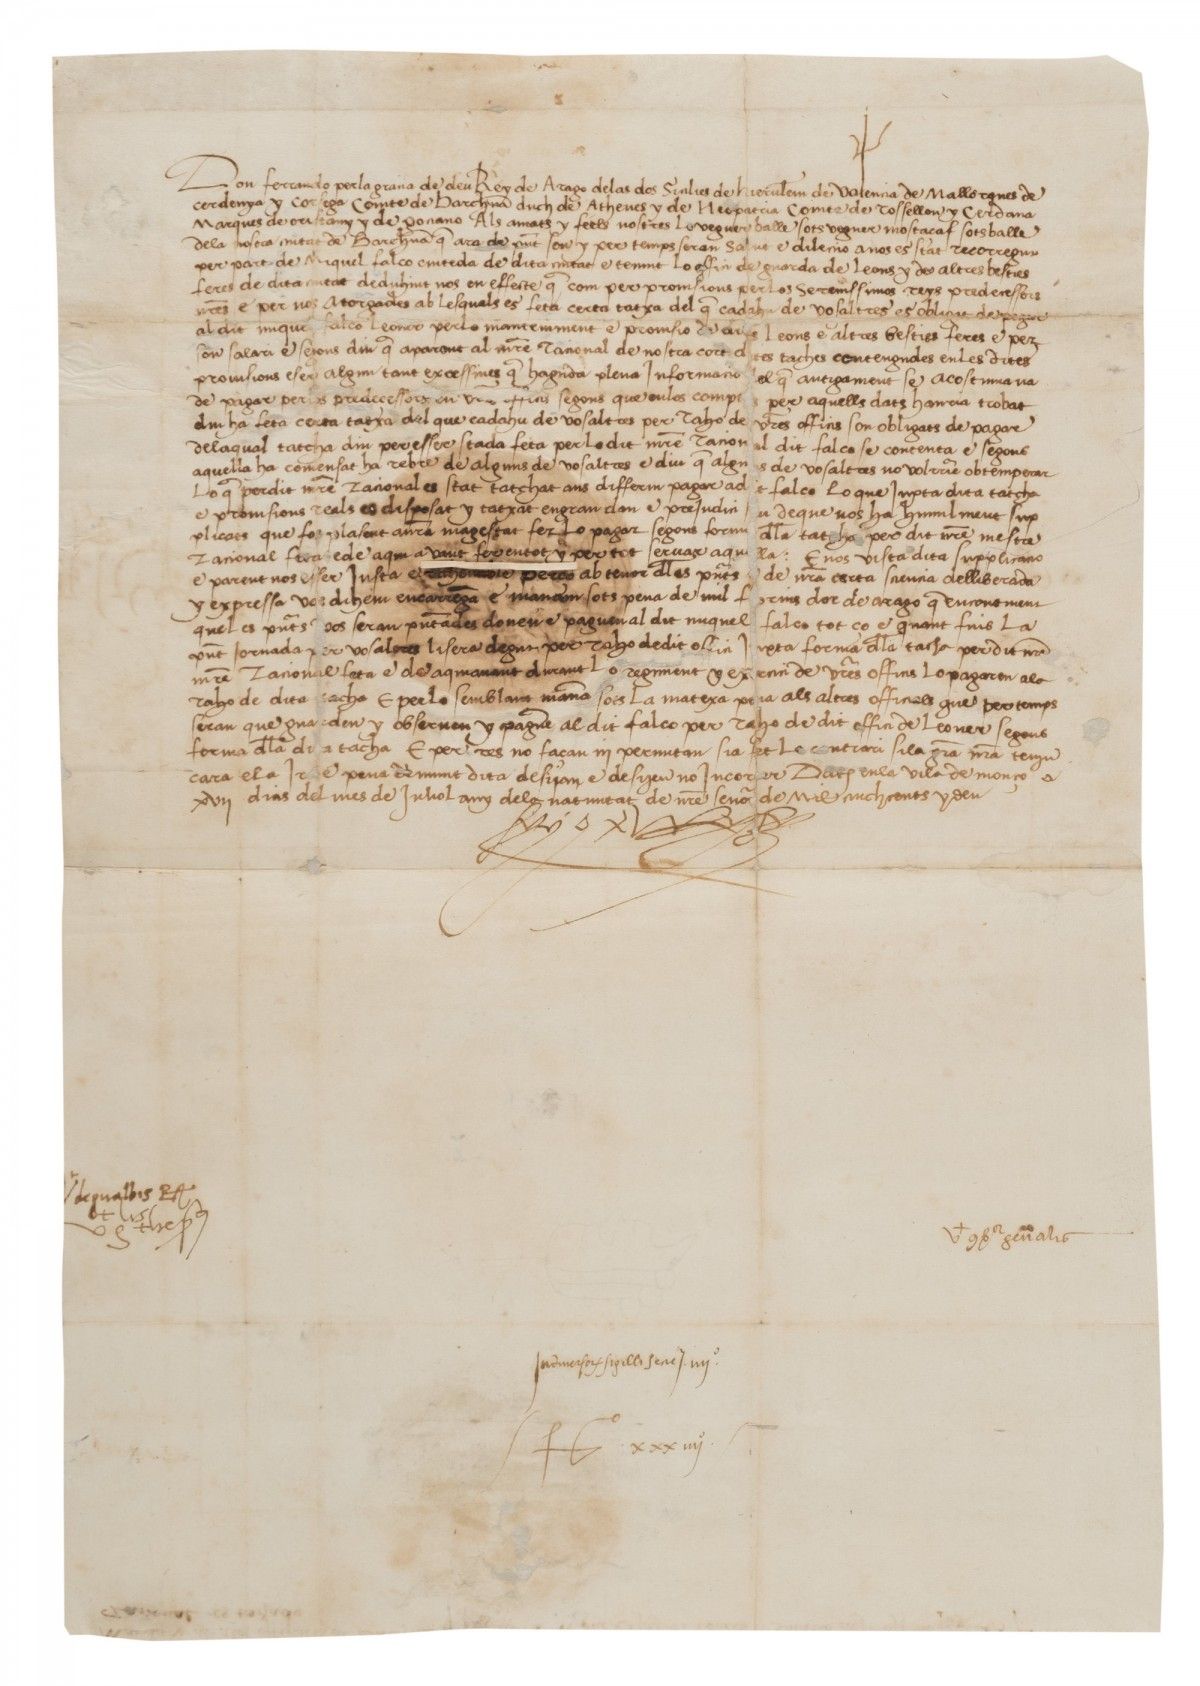 Don ferrando per la gracia de deu Rey de Arago delas dos Sicilies de hierlm de Valencia de Mallorques de
cerdenya y Corsega Comte de Barchna duch de Athenes y de Neopatria Comte de Rossellon y Cerdana
Marques de oristany y de gociano Als amats y feels nostres lo veguer balle sotsveguer mostacaf sotsballe
dela nostra ciutat de Barchna q ara de pnt son y per temps seran Salut e dileccio anos es stat recorregut
per part de Miquel falco ciuteda de dita ciutat e tenint lo offici de guarda de Leons y de altres besties
feres de dita ciutat deduhint nos en effecte q com per provisions per los Serenissimos reys predecessors
nres e per nos Atorgades ab lesquals es feta certa tatxa del q cadahu de vosaltres es obligat de pagar
al dit miquel falco Leoner per lo manteniment e provisio de dits Leons e altres besties feres e per
son salari e segons diu q aparent al mre Racional de nostra cort dites taches contengudes en les dites
provisions esser algun tant excessives q haguda plena Informacio del q antigament se acostumava
de pagar per los predecessors en vres officis segons que en los comptes per aquells dats hauria trobat
diu ha feta certa tatxa del que cadahu de vosaltres per raho de vres officis son obligats de pagar
dela qual tatcha diu per esser stada feta per lo dit mre Racional dit falco se contenta e segons
aquella ha comensat ha rebre de alguns de vosaltres e diu q alguns de vosaltres no volrrie obtemperar
lo q per dit mre Racional es stat tatchat ans differin pagar adit falco lo que Iuxta dita tatcha
e provisions reals es disposat y tatxat en gran dan e prejudici seu deque nos ha humilment sup
plicats que fos plasent a nra magestat fer lo pagar segons forma dla tatcha per dit mre mestre
Racional feta e de aqui avant fer en tot y per tot servar aquella: E nos vista dita supplicacio
e parent nos esser Justa e rahonable perço ab tenor dles pnts e de nra certa sciencia delliberada
y expressa vos dihem encarregam e manam sots pena de mil florins dor de arago q encontinent
que les pnts vos seran pntades doneu e pagueu al dit miquel falco tot ço e quant fins la
pnt jornada per vosaltres li sera degut per raho de dit offici Iuxta forma dla tacha per dit nre
mre Racional feta e de aquiavant durant lo regiment y exercici de vres officis lo pagareu ala
raho de dita tacha E per lo semblant mana sots la matexa pena als altres officials que per temps
seran que guarden y observen y paguen al dit falco per raho de dit offici de Leoner segons
forma dla dita tacha E per res no façan ni permetan sia fet lo contrari si la gra nra teniu
cara e la Ira e pena demunt dita desijau e desijen no Incorrer Dat en la vila de monço a
xvii dias del mes de Juliol any dela natiuitat de nre senor de Mil cinchcents y deu
vt gsor generalis
xxxiiij